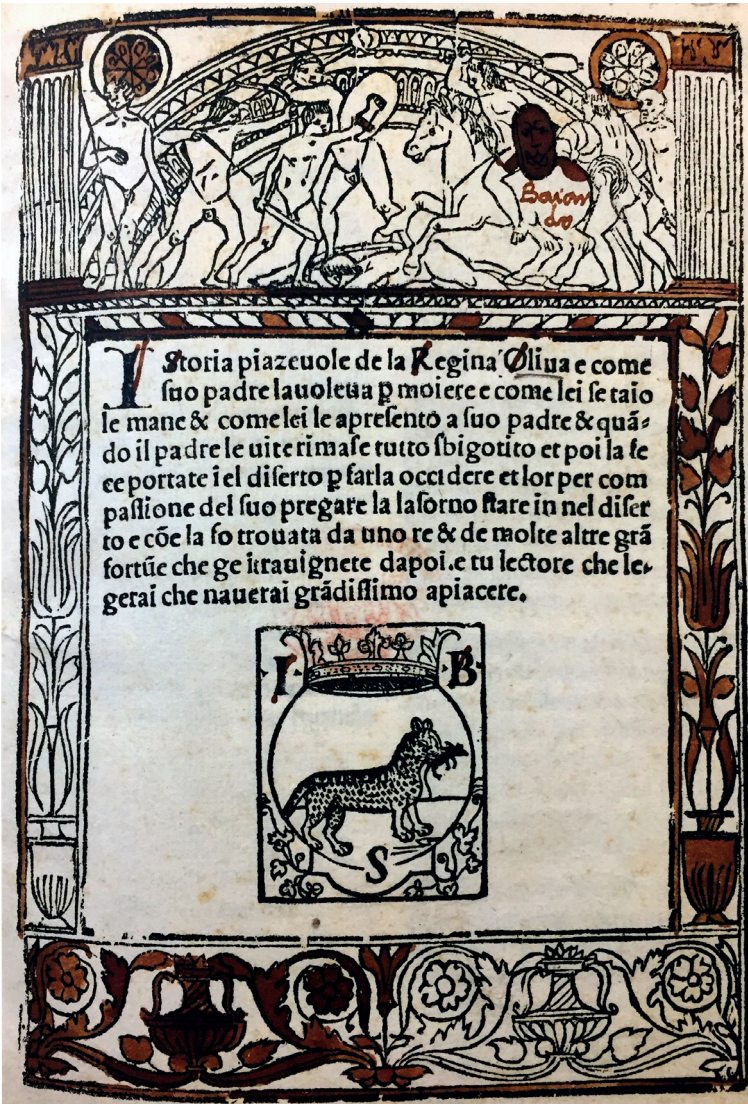 Bouion
do
IStoria piazeuole de la Regina Oliua e come
suo padre lauoleua p̱ moiere e come lei se taio
le mane & come lei le apresento a suo padre & quã-
do il padre le uite rimase tutto sbigotito et poi la fe
ce portate i el diserto p̱ farla occidere et lor per com
passione del suo pregare la lasorno stare in nel diser
to e cõe la fo trouata da uno re & de molte altre grã
fortũe che ge itrauignete dapoi.e tu lectore che le-
gerai che nauerai grãdissimo apiacere.
I B
S